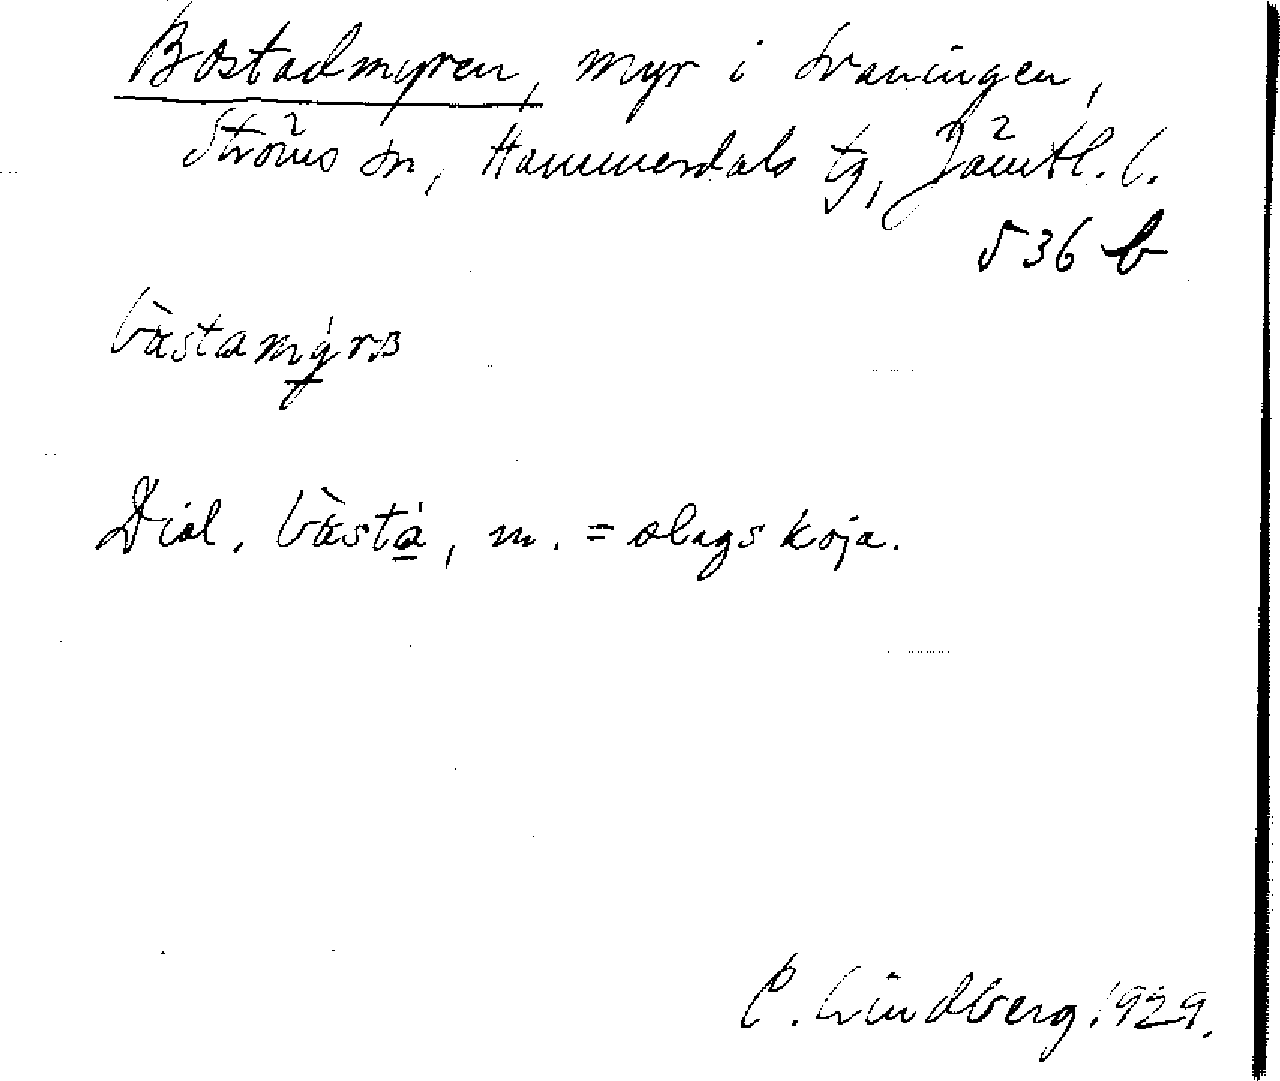 Bostadmyren, myr i Svaningen,
Ströms sn, Hammerdals tg, Jämtl. l.
536 b
bàstamy̆rɞ
Dial. bàsta, m. = slags koja.
C. Lindberg. 1929.